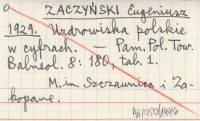 ZACZYŃSKI Eugeniusz
1929. Uzdrowiska polskie
w cyfrach. — Pam. Pol. Tow.
Balneol. 8: 180, tab. 1.
M. in. Szczawnica i Za-
kopane.